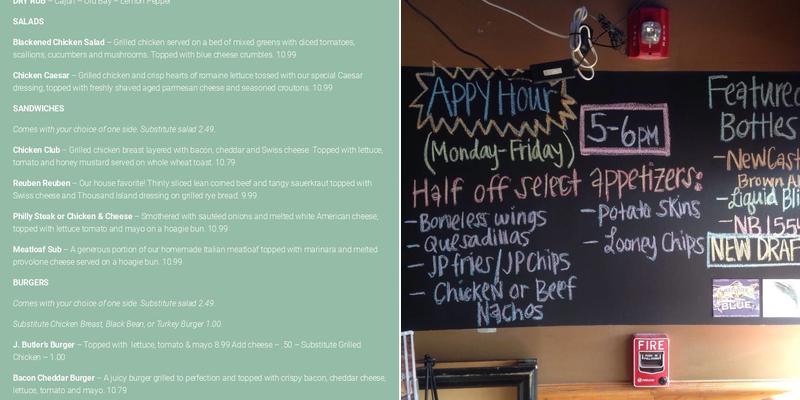 DRY RUB – Cajun – Old Bay – Lemon Pepper
SALADS
Blackened Chicken Salad – Grilled chicken served on a bed of mixed greens with diced tomatoes,
scallions, cucumbers and mushrooms. Topped with blue cheese crumbles. 10.99
Chicken Caesar – Grilled chicken and crisp hearts of romaine lettuce tossed with our special Caesar
dressing, topped with freshly shaved aged parmesan cheese and seasoned croutons. 10.99
SANDWICHES
Comes with your choice of one side. Substitute salad 2.49.
Chicken Club – Grilled chicken breast layered with bacon, cheddar and Swiss cheese. Topped with lettuce,
tomato and honey mustard served on whole wheat toast. 10.79
Reuben Reuben – Our house favorite! Thinly sliced lean corned beef and tangy sauerkraut topped with
Swiss cheese and Thousand Island dressing on grilled rye bread. 9.99
Philly Steak or Chicken & Cheese – Smothered with sautéed onions and melted white American cheese,
topped with lettuce tomato and mayo on a hoagie bun. 10.99
Meatloaf Sub – A generous portion of our homemade Italian meatloaf topped with marinara and melted
provolone cheese served on a hoagie bun. 10.99
BURGERS
Comes with your choice of one side. Substitute salad 2.49.
Substitute Chicken Breast, Black Bean, or Turkey Burger 1.00.
J. Butler's Burger – Topped with lettuce, tomato & mayo 8.99 Add cheese – .50 – Substitute Grilled
Chicken – 1.00
Bacon Cheddar Burger – A juicy burger grilled to perfection and topped with crispy bacon, cheddar cheese,
lettuce, tomato and mayo. 10.79
APPY HOUR
5-6PM
(Monday-Friday)
Half off select appetizers:
- Boneless wings
- Quesadillas
- JP fries/JP Chips
- Chicken or Beef
Nachos
- Potato Skins
- Looney Chips
Featured
Bottles
- NewCast
Brown Al
- Liquid Bli
- NB 155
NEW DRAF
BLUE
FIRE